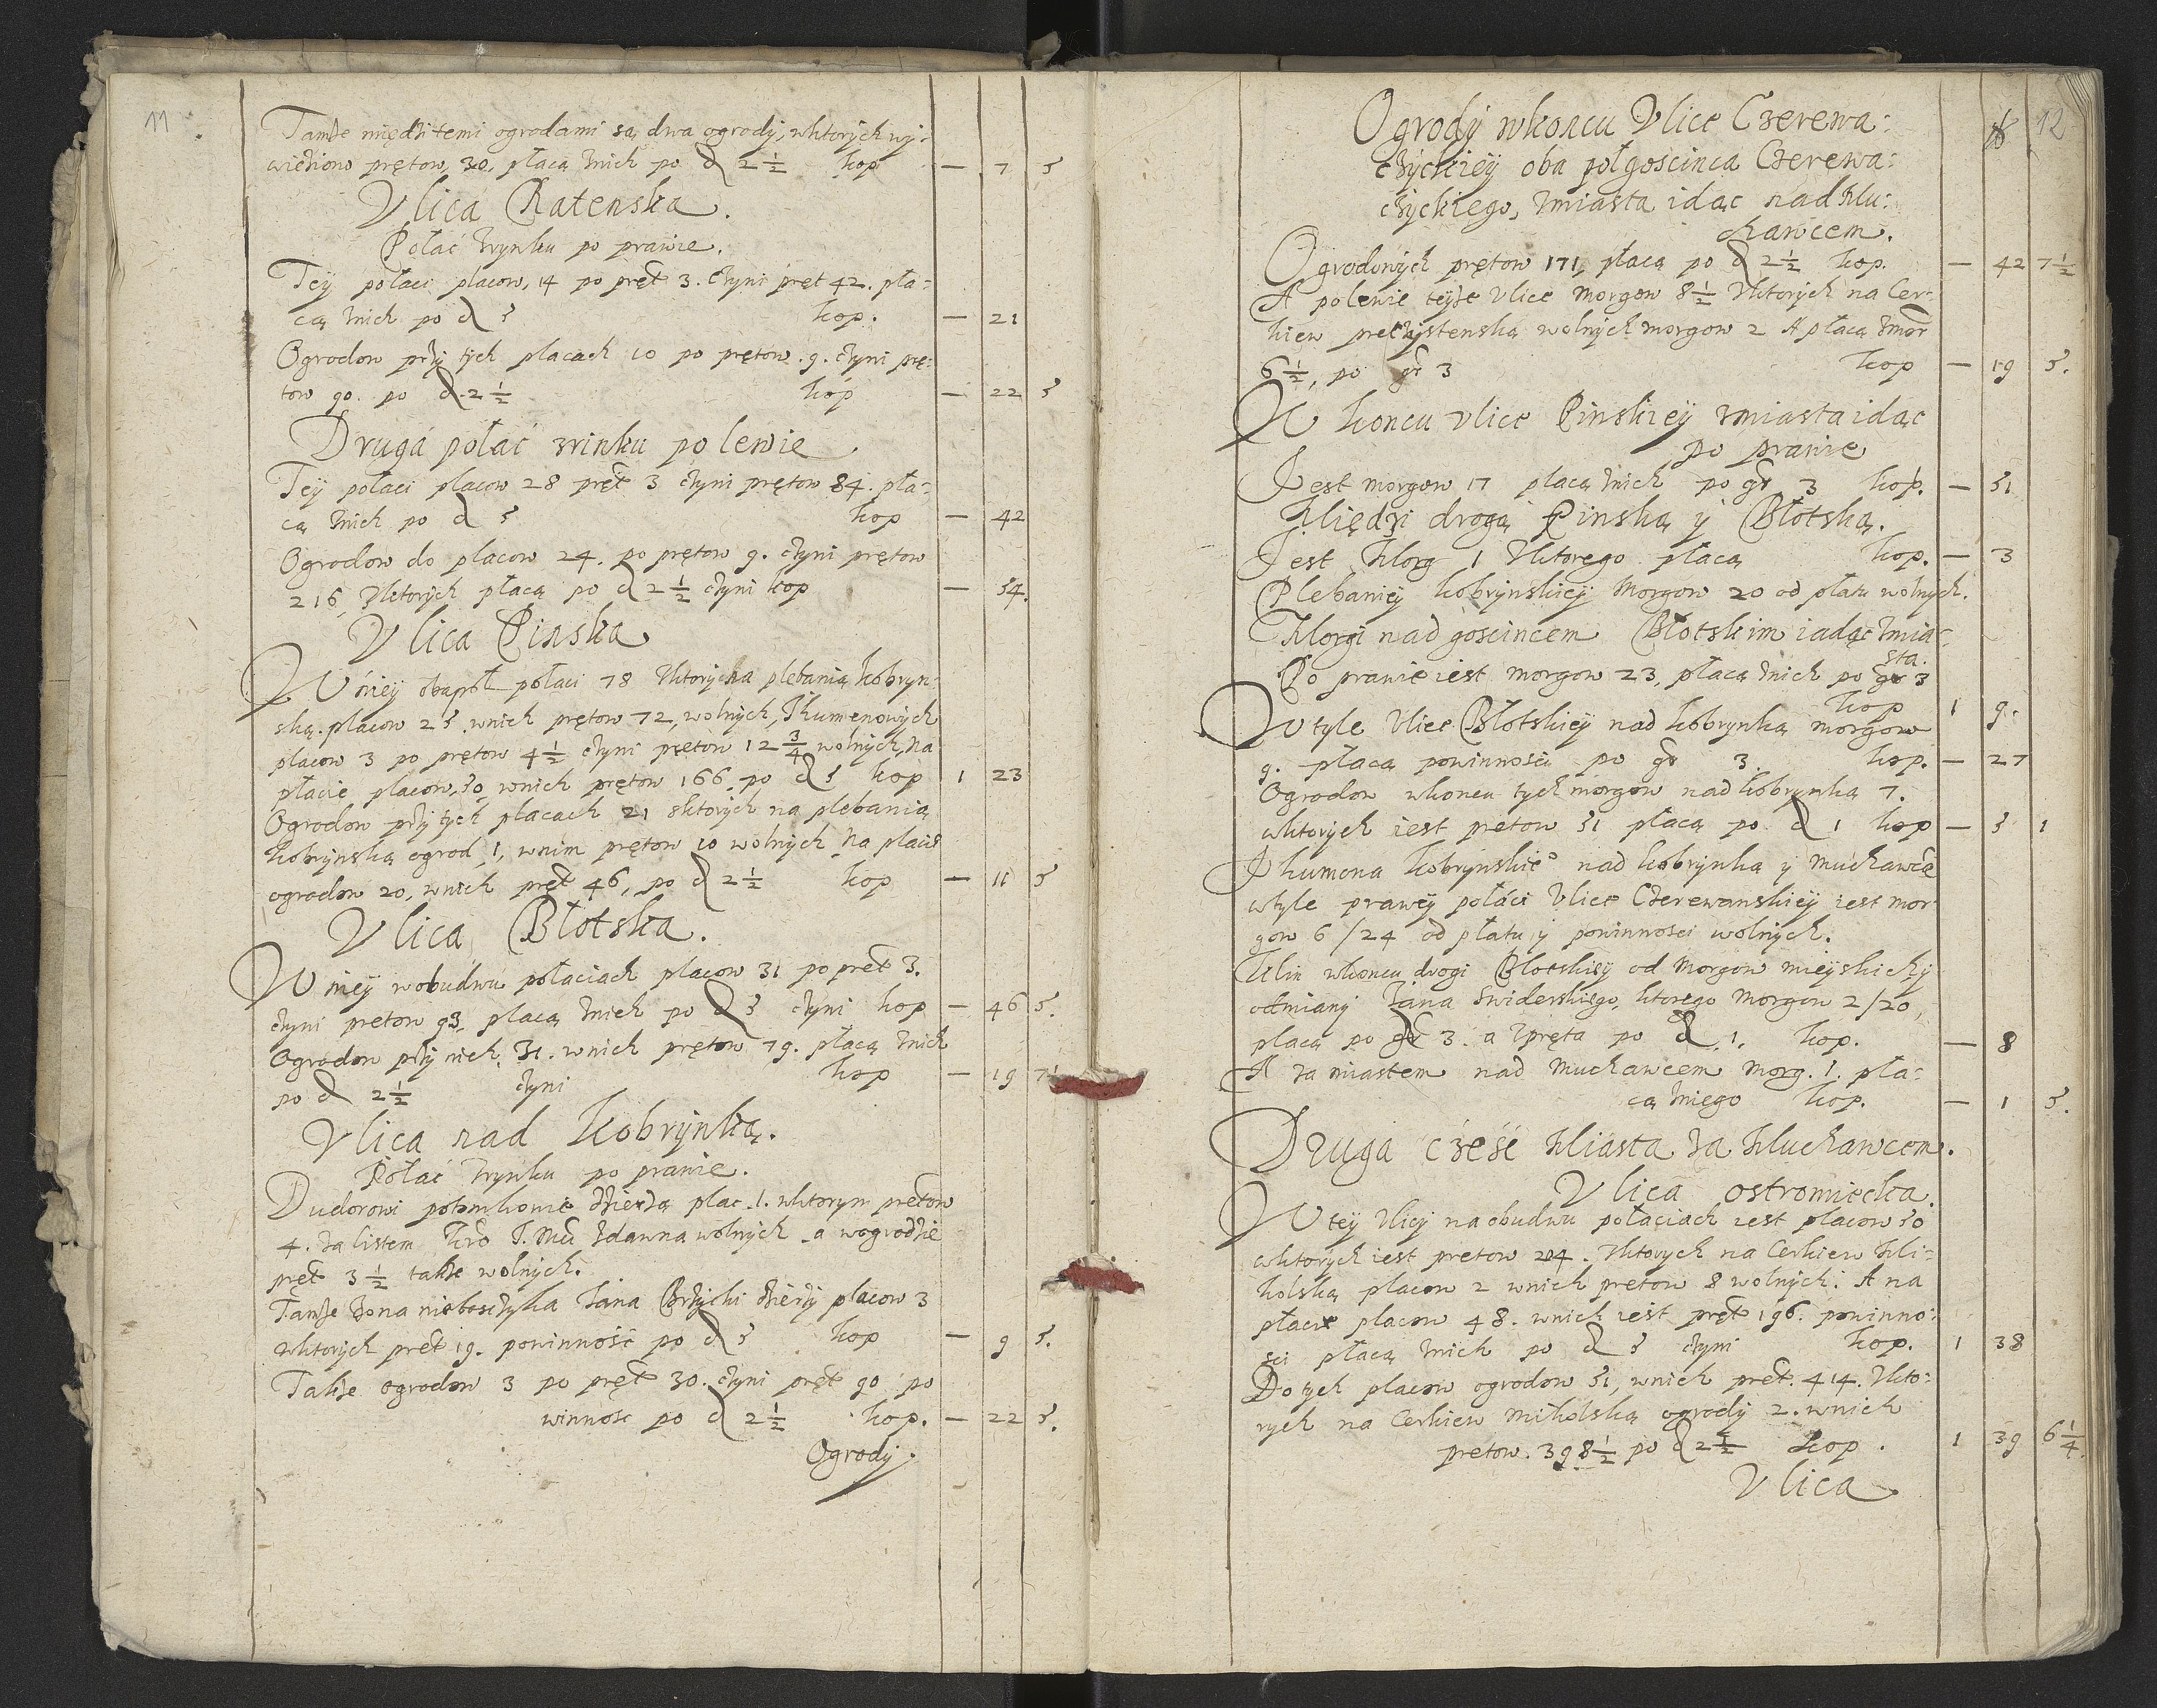 11
Tamże międzi temi ogrodami są dwa ogrody, wktorych wy:
wiedziono prętow, 30, płacą znich po d 2 1/2 kop — 7 5
Vlica Ratenska.
Połać zrynku po prawie.
Tey połaci placow, 14 po pręt 3. czyni pręt 42. pła:
cą znich po d 5 kop. — 21
Ogrodow przy tych placach 10 po prętow. 9. czyni prę:
tow 90. po d. 2 1/2 kop — 22 5
Druga połać zrinku po lewie
Tey połaci placow 28 pręt 3 czyni prętow 84. pła:
cą znich po d 5 kop — 42
Ogrodow do placow 24. po prętow 9. czyni prętow
216, Zktorych płacą po d 2 1/2 czyni kop — 54.
Vlica Pinska
W niey obapoł połaci 78 Zktorych na plebanią kobryn:
ską. placow 25. wnich prętow 72, wolnych, Ihumenowych
placow 3 po prętow 4 1/2 czyni prętow 12 3/4 wolnych, Na
płacie placow, 50, wnich prętow 166, po d 5 kop 1 23
Ogrodow przy tych placach 21 sktorych na plebanią
kobrynską ogrod 1, wnim prętow 10 wolnych, Na płacie
ogrodow 20, wnich pręt 46, po d 2 1/2 kop — 11 5
Vlica Błotska.
W niey wobudwu połaciach placow 31 po pręt 3.
czyni prętow 93, płacą znich po d 5 czyni kop — 46 5.
Ogrodow przy nich 31. wnich prętow 79. płacą znich
po d 2 1/2 czyni kop — 19 7 1
Vlica nad Kobrynką.
Połać zrynku po prawie.
Dudorowi potomkowie dzierżą plac. 1. wktorym prętow
4. za listem Kro J. Mci zdawna wolnych, a wogrodzie
pręt 3 1/2 także wolnych.
Tamże żona nieboszczyka Jana Brzycki dzierży placow 3
wktorych pręt 19. powinność po d 5 kop — 9 5.
Także ogrodow 3 po pręt 30. czyni pręt 90 po
winnosc po d 2 1/2 kop. — 22 5.
Ogrody.
12
Ogrody wkoncu Vlice Czerewa:
czyckiey oba połgoscinca Czerewa:
czyckiego, zmiasta idąc nad Mu:
chawcem.
Ogrodowych prętow 171, płacą po d 2 1/2 kop. — 42 7 1/2
A po lewie teyże Vlice Morgow 8 1/2 Zktorych na Cer:
kiew preczystenską wolnych morgow 2 A płacą zmor
6 1/2, po gr 3 kop — 19 5.
W koncu vlice Pinskiey zmiasta idąc
po prawie
Jest morgow 17 płacą znich po gr 3 kop. — 51
Między drogą Pinską y Błotską.
Jest Morg 1 Zktorego płacą kop. — 3
Plebaniey kobrynskiey Morgow 20 od płatu wolnych.
Morgi nad goscincem Błotskim iadąc zmia:
sta.
Po prawie iest morgow 23, płacą znich po gr 3
kop 1 9.
W tyle Vlice Błotskiey nad kobrynką morgow
9. płacą powinności po gr 3. kop. — 27
Ogrodow wkoncu tych morgow nad kobrynką 7.
wktorych iest prętow 51 płacą po d 1 kop — 5 1
Ihumena kobrynskieo nad kobrynką y Muchawcē
wtyle prawey połáci Vlice Czerewanskiey iest mor
gow 6/24 od płatu y powinności wolnych.
Klin wkoncu drogi Błotskiey od Morgow mieyskichy
odmiany Jana Swiderskiego, ktorego Morgow 2/20,
płacą po gr 3. a zpręta po d. 1. kop. — 8
A za miastem nad Muchawcem Morg. 1. pła:
cą zniego kop. — 1 5.
Druga część Miasta za Muchawcem.
Vlica ostromiecka.
W tey Vlicy na obudwu połaciach iest placow 50
wktorych iest prętow 204. Zktorych na Cerkiew Mi:
kolską placow 2 wnich prętow 8 wolnych. A na
płacie placow 48. wnich iest pręt 196. powinno:
sci płacą znich po d 5 czyni kop. 1 38
Do tych placow ogrodow 51, wnich pręt. 414. Zkto:
rych na Cerkiew mikolską ogrody 2. wnich
prętow. 398 1/2 po d 2 1/2 kop. 1 39 6 1/4.
Vlica